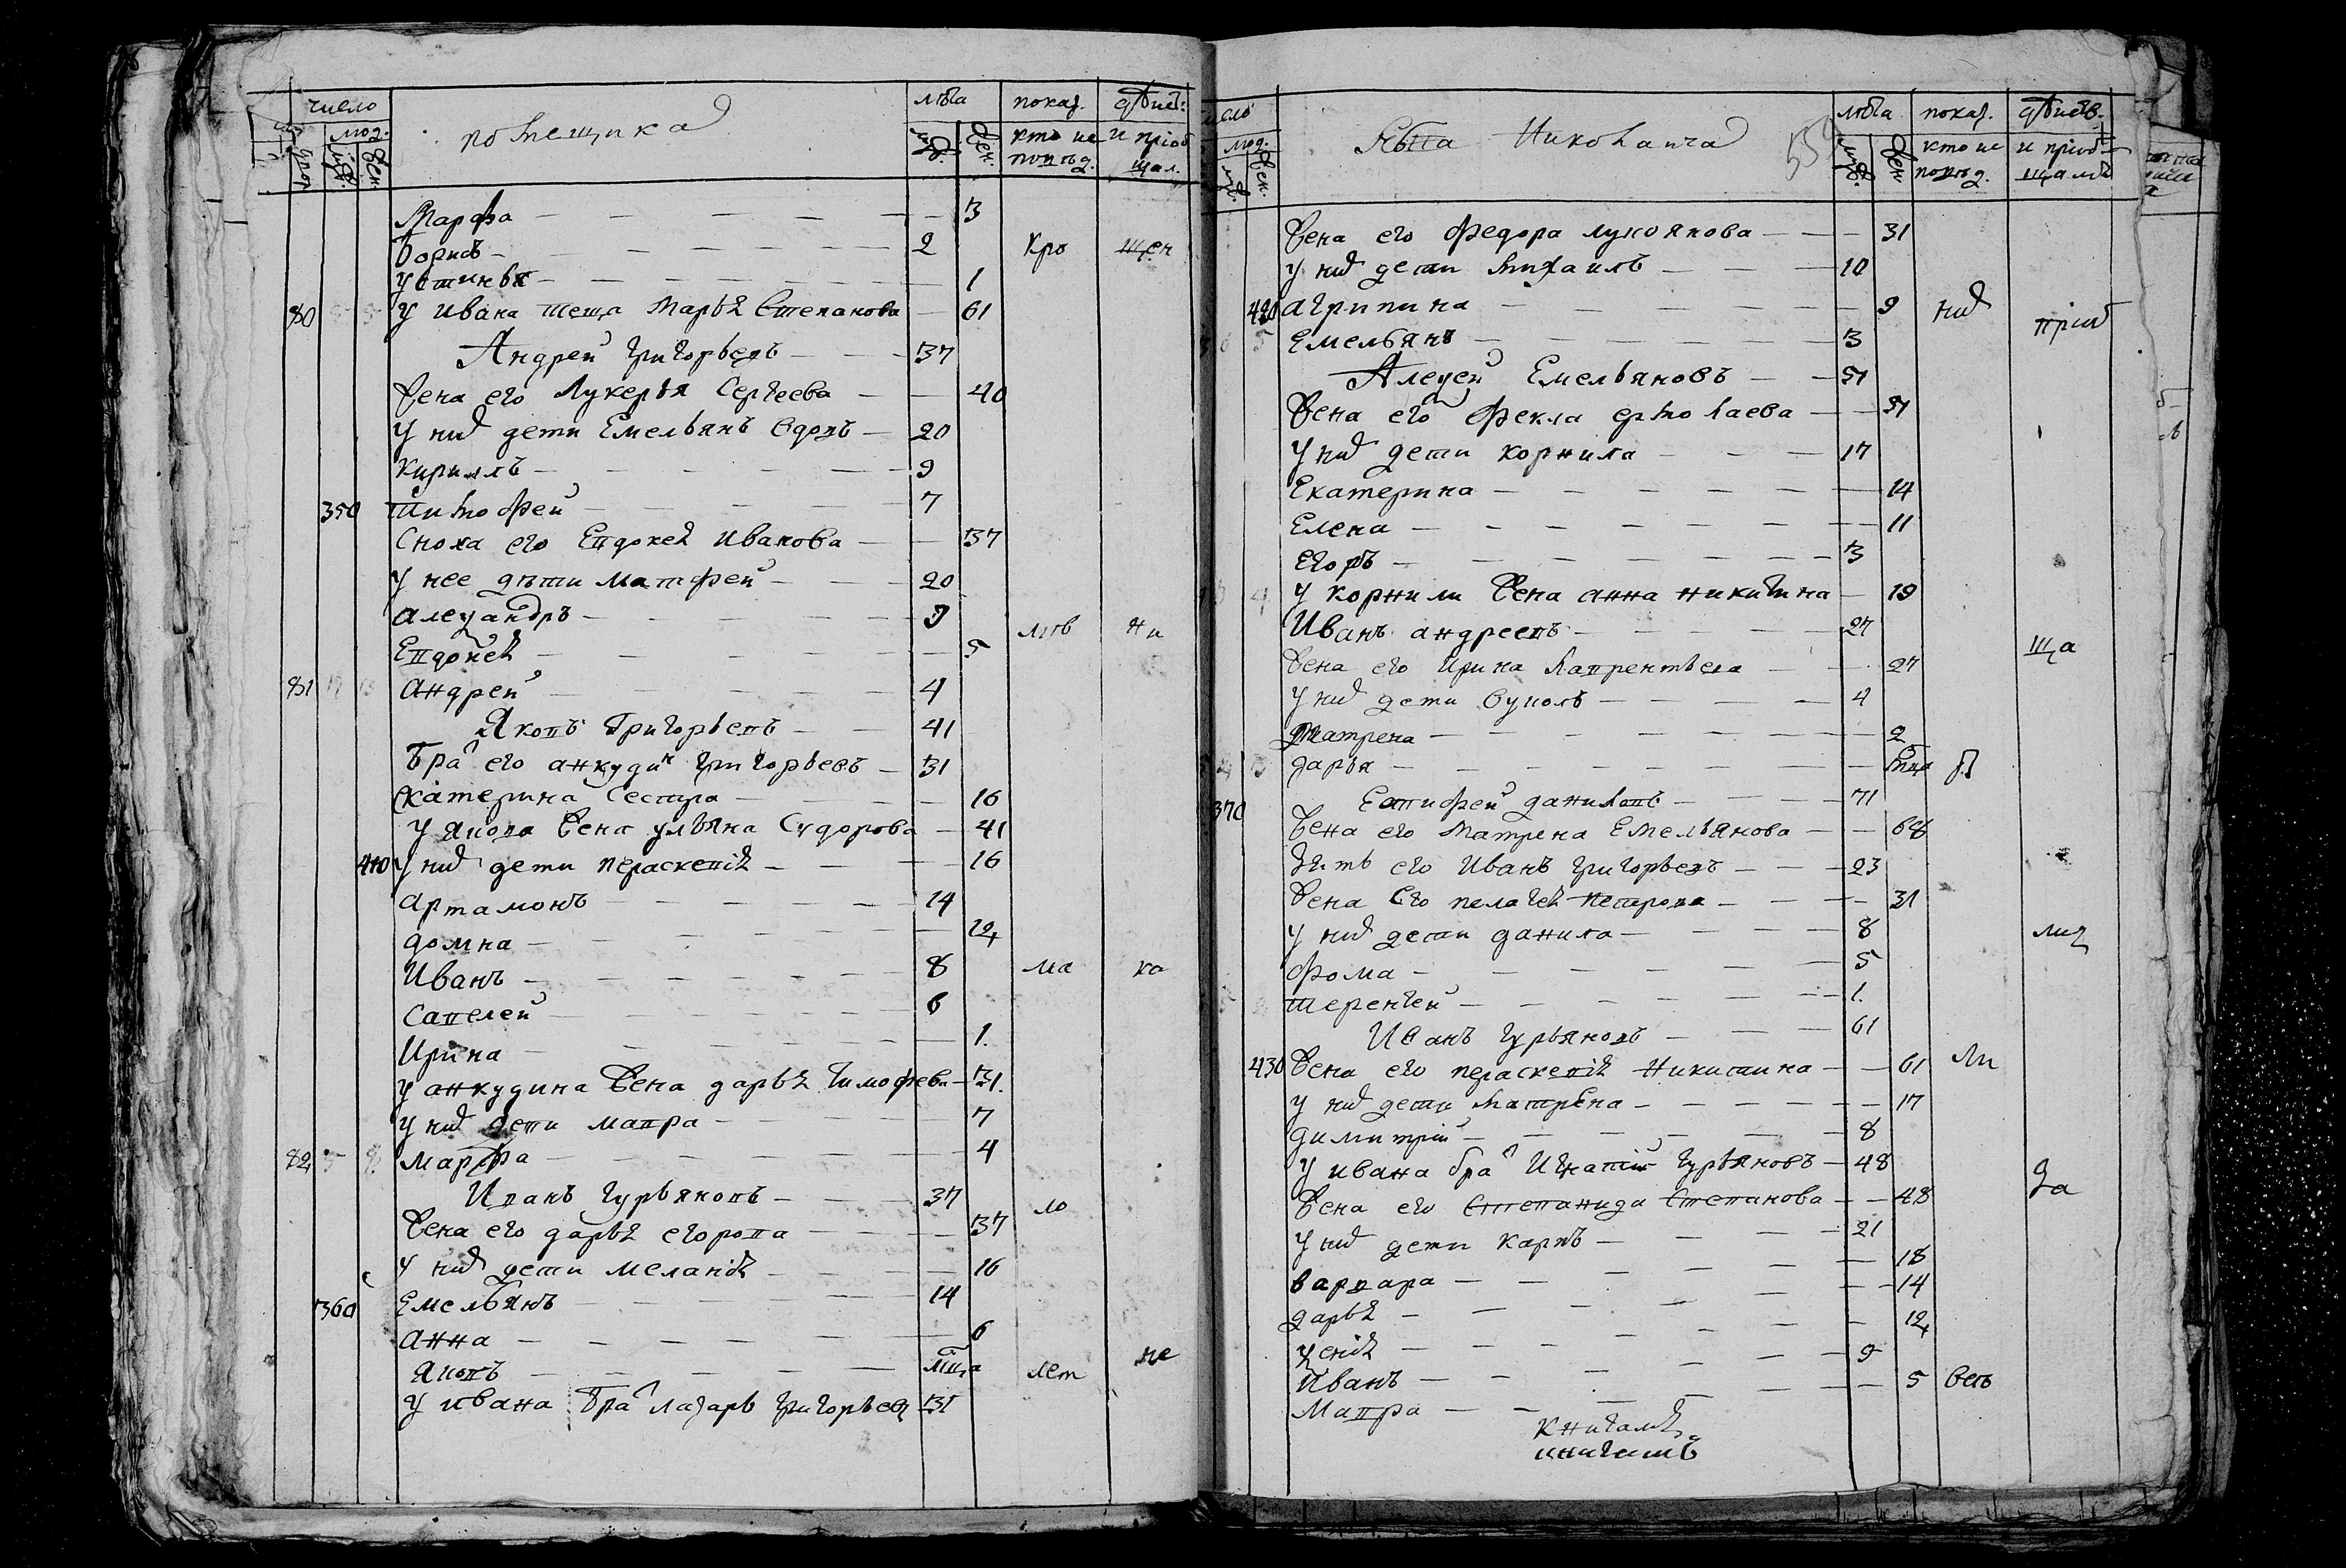 число помещика лѣта показ. дѣист:
двор люд. муж. жен. муж. жен. кто не и приоб
муж. жен. поиѣд. щал.
Марфа 3
борисъ 2 кро щен
устинья 1
80 У ивана теща Марья Степанова 61
Андрей григорьевъ 37
Жена его Лукерья Сергеева 40
У них дети Емельянъ вдовъ 20
кириллъ 9
350 тимофей 7
Сноха его Евдокея иванова 37
У нее дѣти матфей 20
александръ 9 лив ни
Евдокея 5
81 андрей 4
Яковъ григорьевъ 41
бра его анкудин григорьевъ 31
екатерина сестра 16
У якова жена ульяна Сидорова 41
410 У них дети пераскевія 16
артамонъ 14
домна 12
Иванъ 8 ма ка
савелей 6
Ирина 1.
У анкудина жена дарья тимофев. 31.
У них дети мавра 7
82 марфа 4
Иванъ гурьяновъ 37 ло
Жена его дарья егорова 37
У них дети меланія 16
360 Емельянъ 14
анна 6
яковъ мца лет не
У ивана бра лазарь григорьев 31
число Николаича 559 лѣта показ. дѣиств.
люд. муж. жен. муж. жен. кто не и приоб
поиѣд. щалися
Жена его федора лукоянова 31
У них дети михаилъ 10
420 агрипина 9 них приоб
Емельянъ 3
Алексей Емельяновъ 37
Жена его фекла ермолаева 37
У них дети корнила 17
Екатерина 14
Елена 11
егоръ 3
У корнили жена анна никитина 19
Иванъ андреевъ 27 ща
Жена его ирина лаврентьева 27
У них дети 4
матрена 2
дарья мца
370 Евтифей даниловъ 71
Жена его матрена Емельянова 68
зять его Иванъ григорьевъ 23
Жена его пелагея петрова 31
У них дети данила 8
фома 5
терентей 1.
Иванъ гурьяновъ 61
430 Жена его пераскевія Никитина 61 ли
У них дети матрена 17
димитрій 8
У ивана бра Игнатій гурьяновъ 48 за
Жена его Степанида Степанова 48
У них дети карпъ 21
варвара 18
дарья 14
12
Иванъ 9
Мавра 5
книгамъ